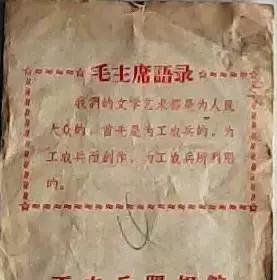 毛主席語录
我們的文学艺术都是为人民
大众的，首先是为工农兵的，为
工农兵而創作，为工农兵所利用
的。